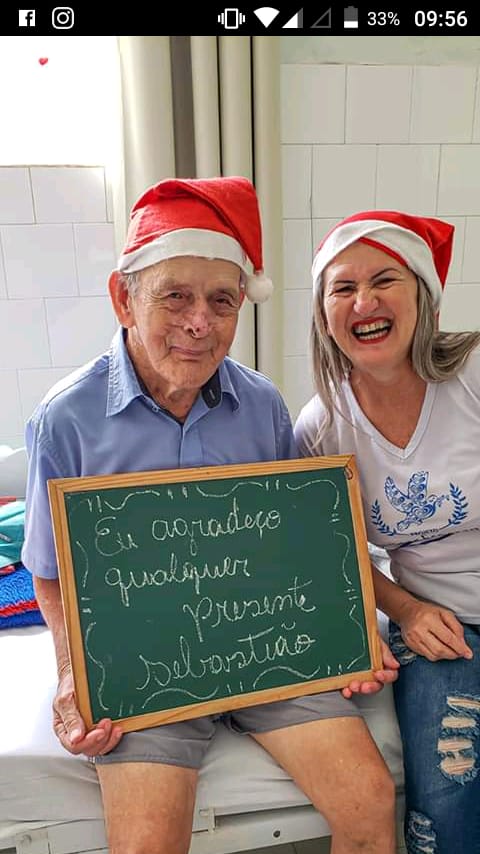 33% 09:56
Eu agradeço
qualquer
presente
sebastião
PROJETO